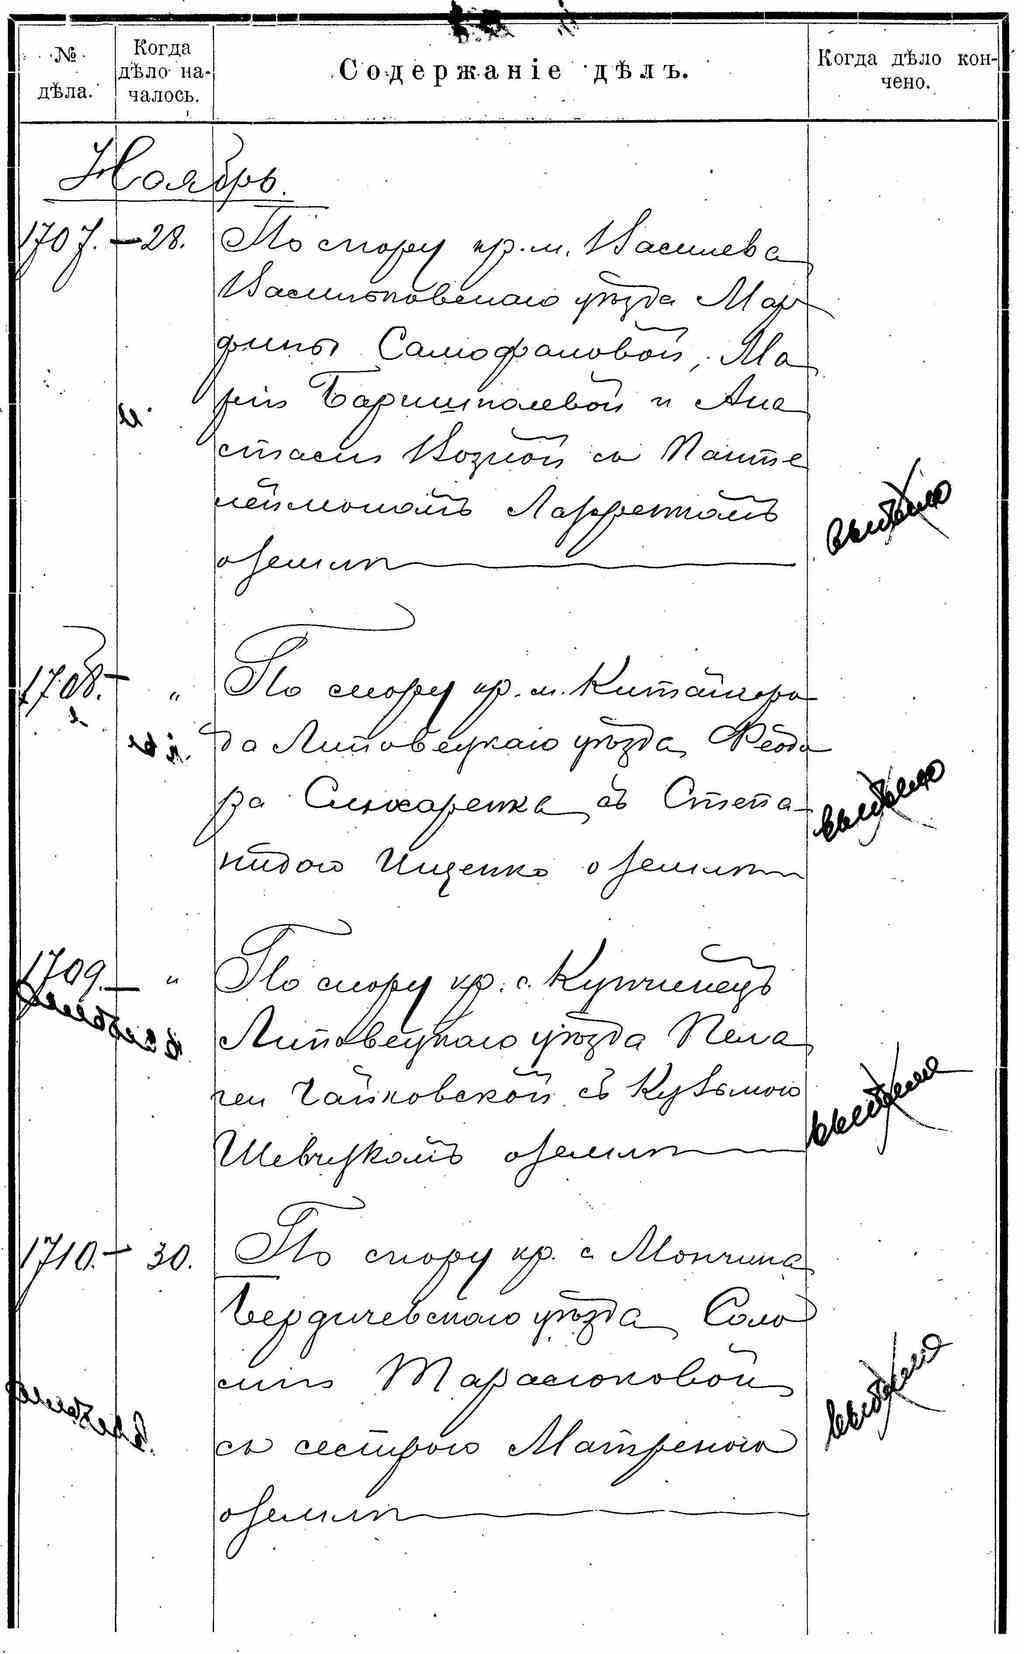 № дѣла.
Когда дѣло на-
чалось.
Содержаніе дѣлъ.
Когда дѣло кон-
чено.
Ноябрь.
1707. — 28. По спору кр. м. Василева
Васильковскаго уѣзда Мар
фины Самофаловой, Ма
ріи Баришполевой и Ана
стасіи Возной съ Панте
леймономъ
о землѣ
выбыло
1708. — " По спору кр. м. Китайгоро
да Липовецкаго уѣзда Ѳеодо
ра Слюсаренка съ Степа-
нидою Ищенко о землѣ
выбыло
1709. — " По спору кр. с. Купчинецъ
Липовецкаго уѣзда Пела
геи Чайковской съ Кузьмою
Шевчукомъ о землѣ
выбыла
1710. — 30. По спору кр. с. Мончина
Бердичевскаго уѣзда Соло
міи Тарасюковой
съ сестрою Матреною
о землѣ
выбыла